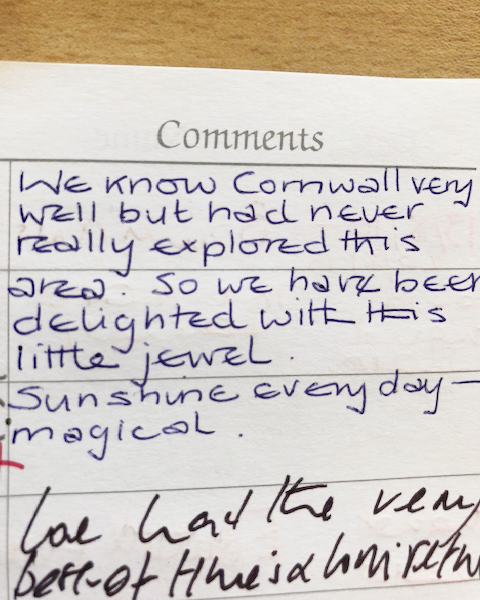 Comments
We know Cornwall very
well but had never
really explored this
area. So we have been
delighted with this
little jewel.
Sunshine every day —
magical.
had the very